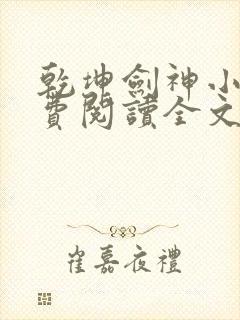 乾坤劍神小
費閱讀全文
崔嘉夜禮